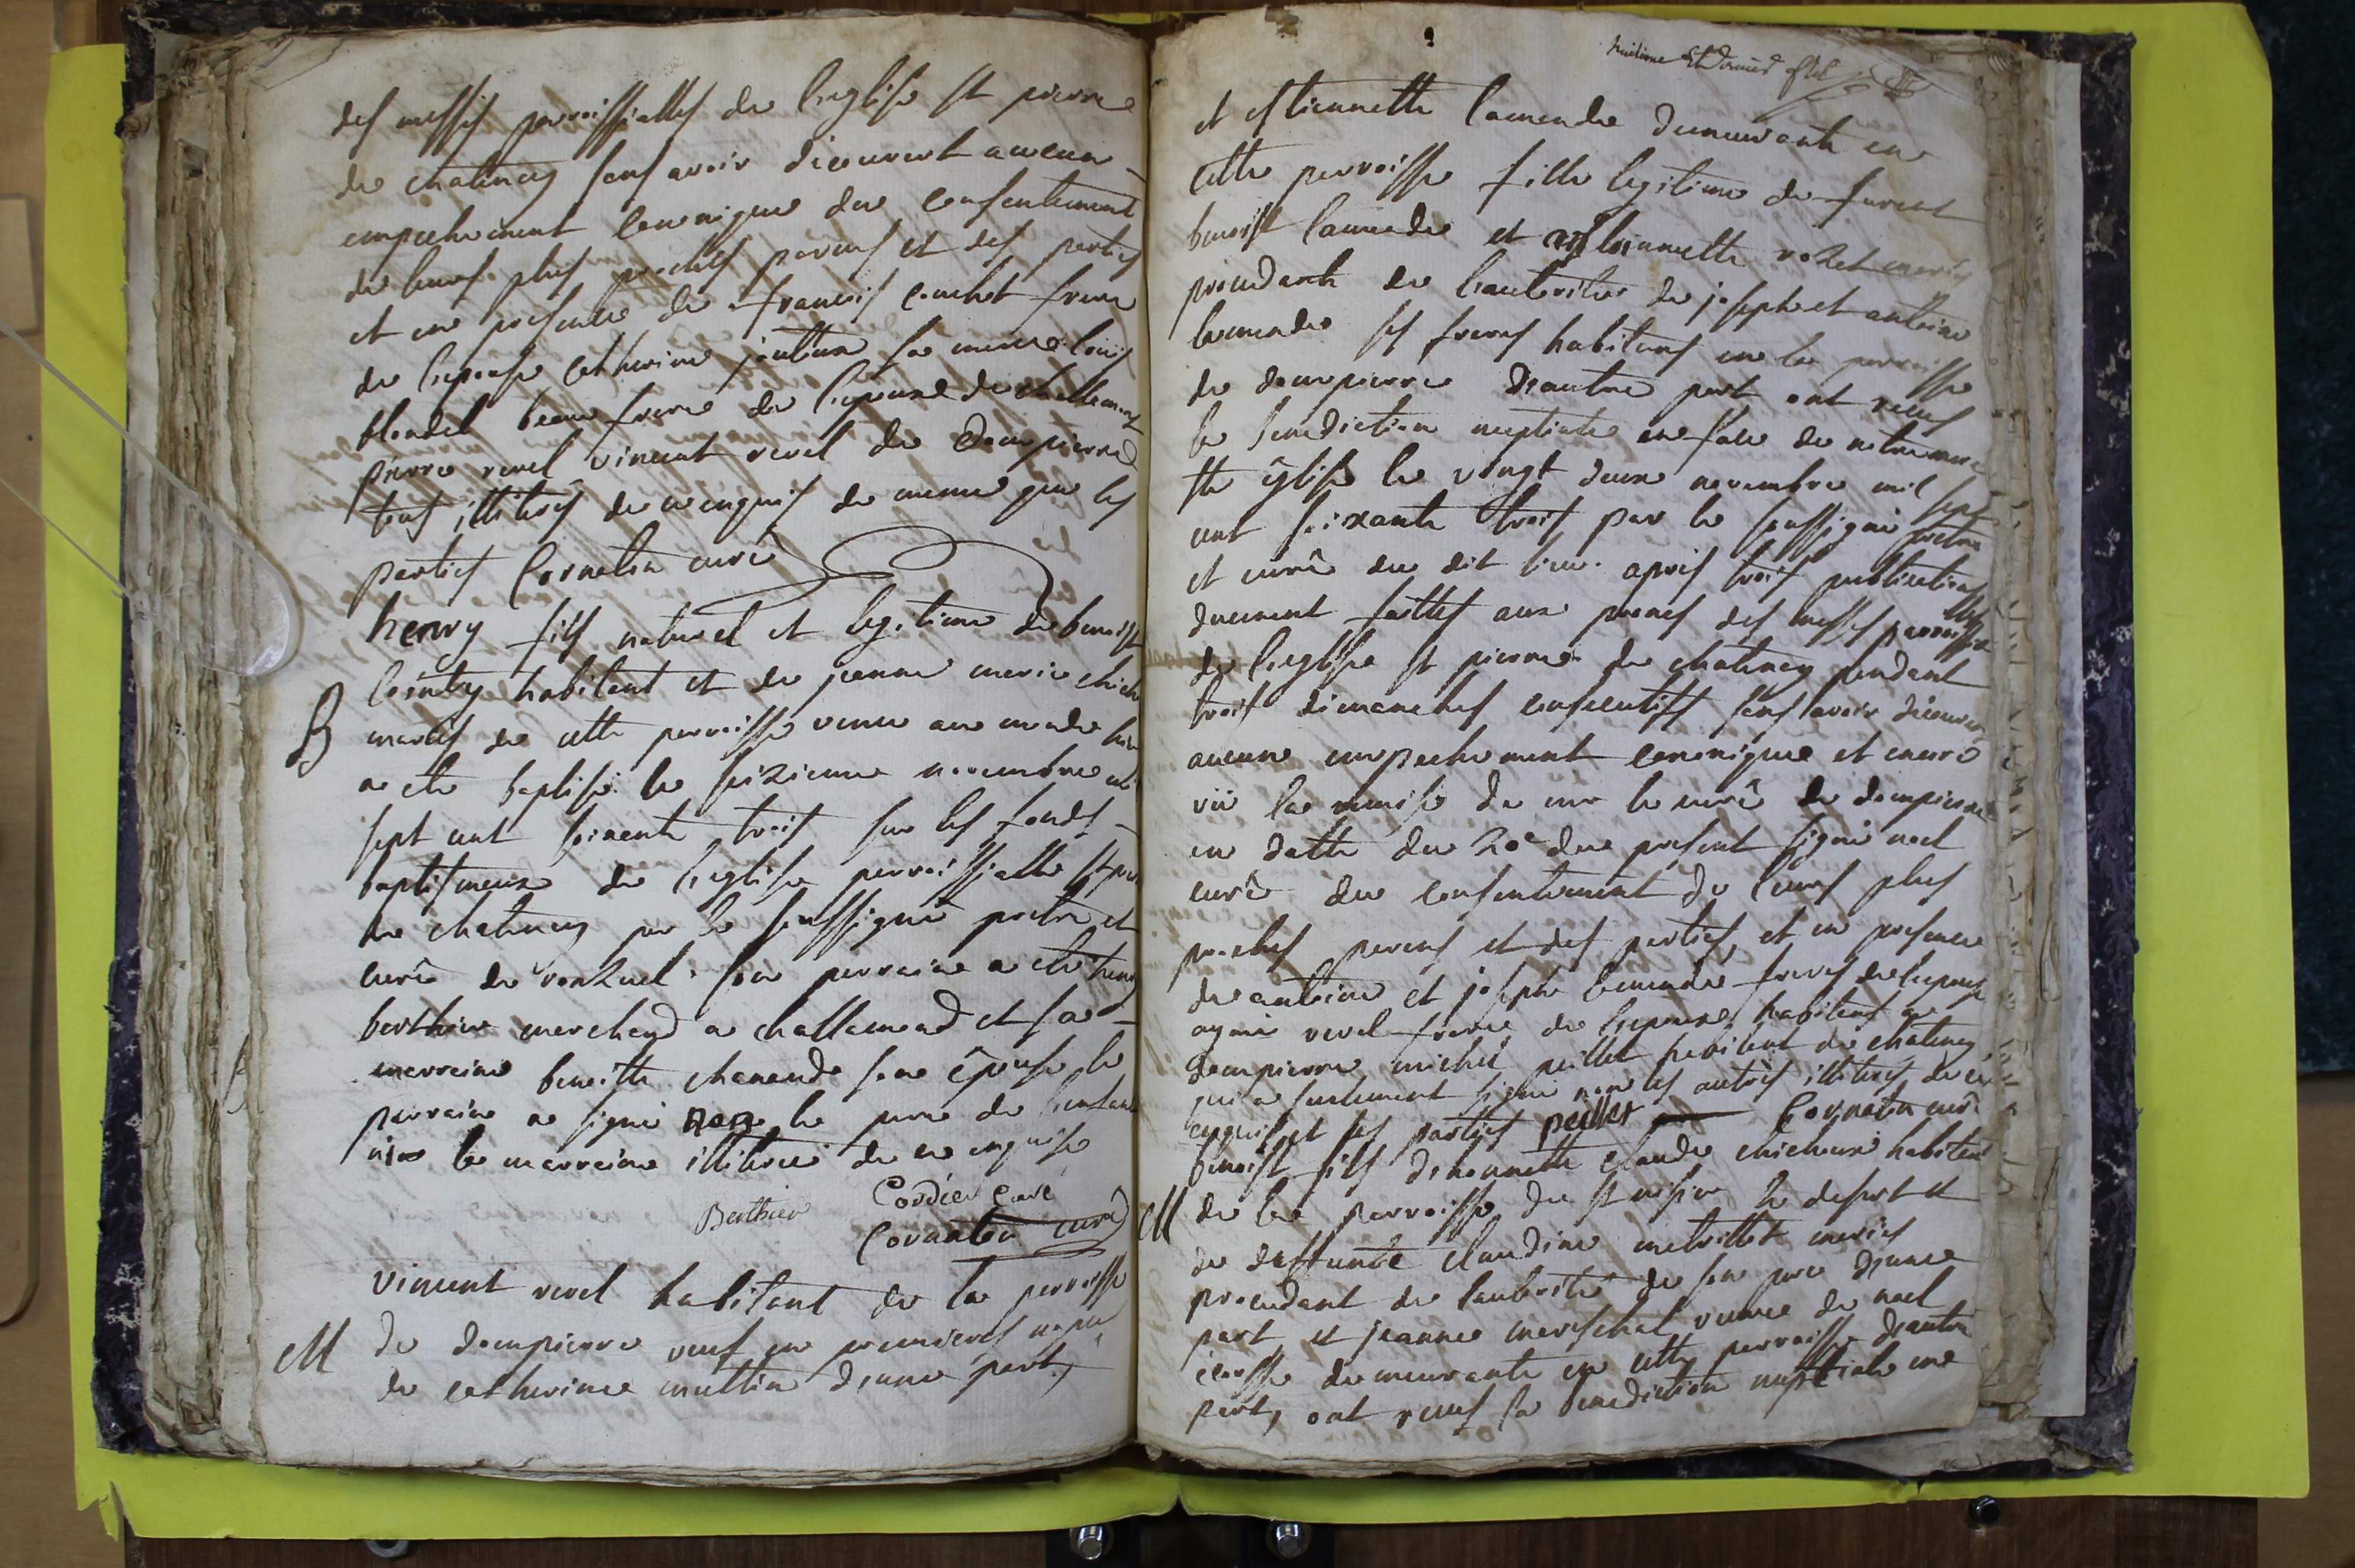 des messes parroissialles de l'eglise st pierre
de chatenay sans avoir découvert aucun
empechement canonique du consentement
de leurs plus proches parens et des parties
et en presence de francois cochet frere
de l'epouse catherine sa mere louis
blondel beau frere de l'epouse de chattenay
pierre revel vincent revel de dompierre
tous illiterés de ce enquis de meme que les
parties Cornaton curé
henry fils naturel et legitime de benoist
habitant et de jeanne marie
B
mariés de cette parroisse venu au monde hier
a eté baptisé le seizieme novembre mil
sept cent soixante trois sur les fonds
baptismeaux de l'eglise parroissialle st pierre
de chatenay par le soussigné pretre et
curé de ronzuel. son parrain a été henry
berthier marchand a challamond et sa
marraine benoitte chanaud son épouse le
parrain a signé non le pere de l'enfant
ni la marraine illiterée de ce enquise
Berthier Cordier curé
Cornaton curé
vincent revel habitant de la parroisse
M
de dompierre veuf en premieres nopces
de catherine muttin d'une part,
huitieme et dernier
et estiennette lamende demeurante en
cette parroisse fille legitime de furent
benoist lamende et rozet mariés
procedante de l'autorité de joseph et antoine
lamende ses freres habitans en la parroisse
de dompierre d'autre part ont receus
la benediction nuptiale en face de notre mere
ste église le vingt deux novembre mil sept
cent soixante trois par le soussigné pretre
et curé du dit lieu. apres trois publications
duement faittes aux prones des messes parroissialles
de l'eglise st pierre de chatenay pendant
trois dimanches consecutifs sans avoir découvert
aucun empechement canonique et encore
vü la remise de mr le curé de dompierre
en datte du 20e du present signé noel
curé du consentement de leurs plus
proches parens et des parties, et en presence
de antoine et joseph lamende freres de l'epouse
revel frere de l'epoux habitans de
dompierre michel peillet habitant de chatenay
qui a seulement signé non les autres illiterés de ce
enquis et les parties peillet Cornaton curé
benoist fils d'honnette claude chicheux habitant
M
de la parroisse de st nisier le desert et
de deffunte claudine metrillet mariés
procedant de l'autorité de son pere d'une
part, et jeanne mareschal veuve de noel
demeurante en cette parroisse d'autre
part, ont receus la benediction nuptiale en